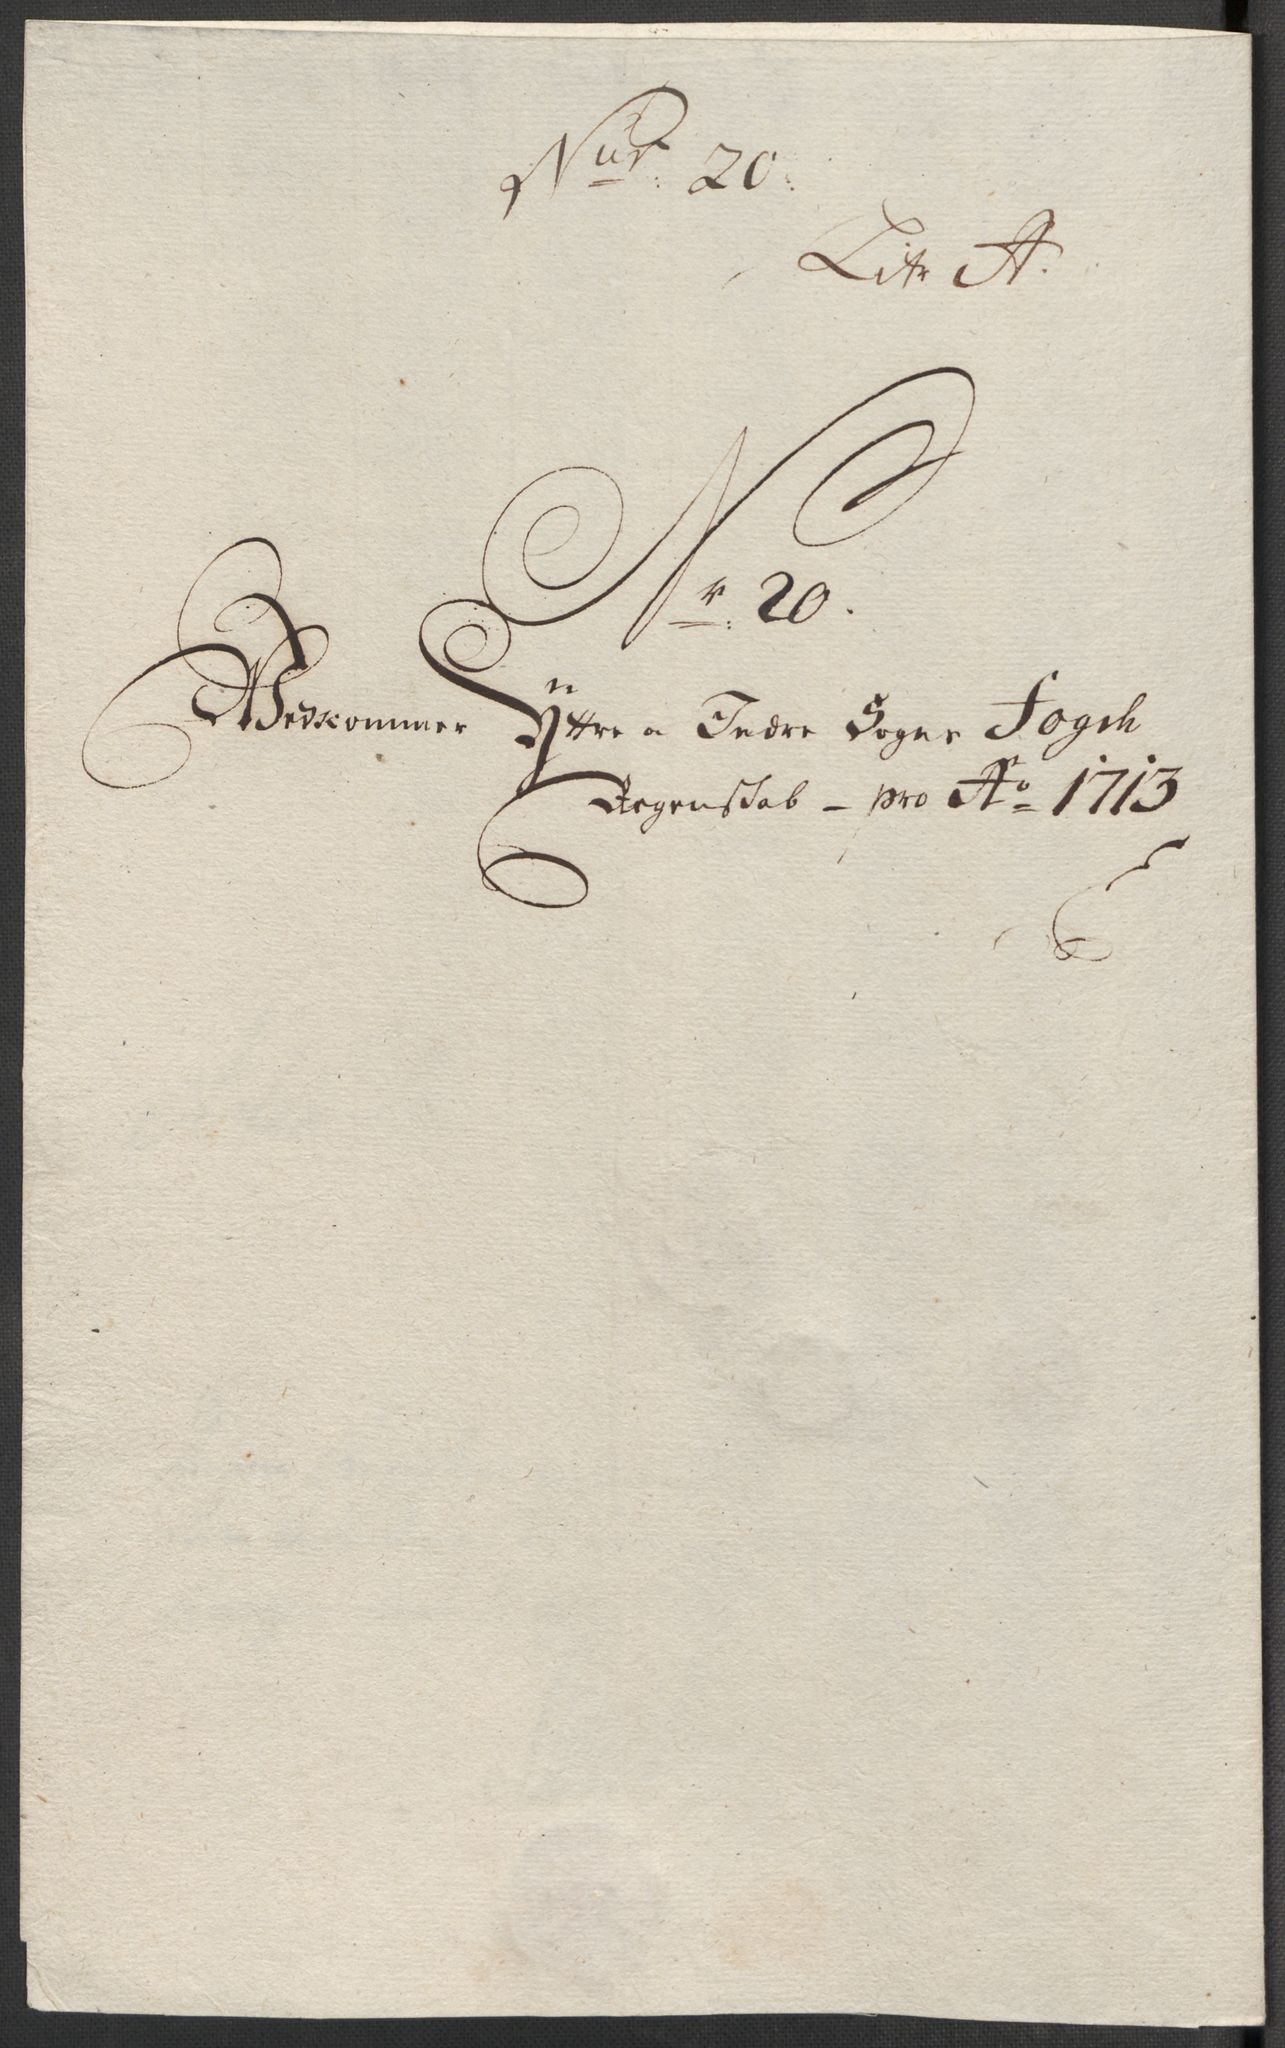 Nur. 20.
Litr A.
Nr. 20.
Vedkommer Yttre a Indre Sogns Fogd
Regenskab - pro Ao 1713